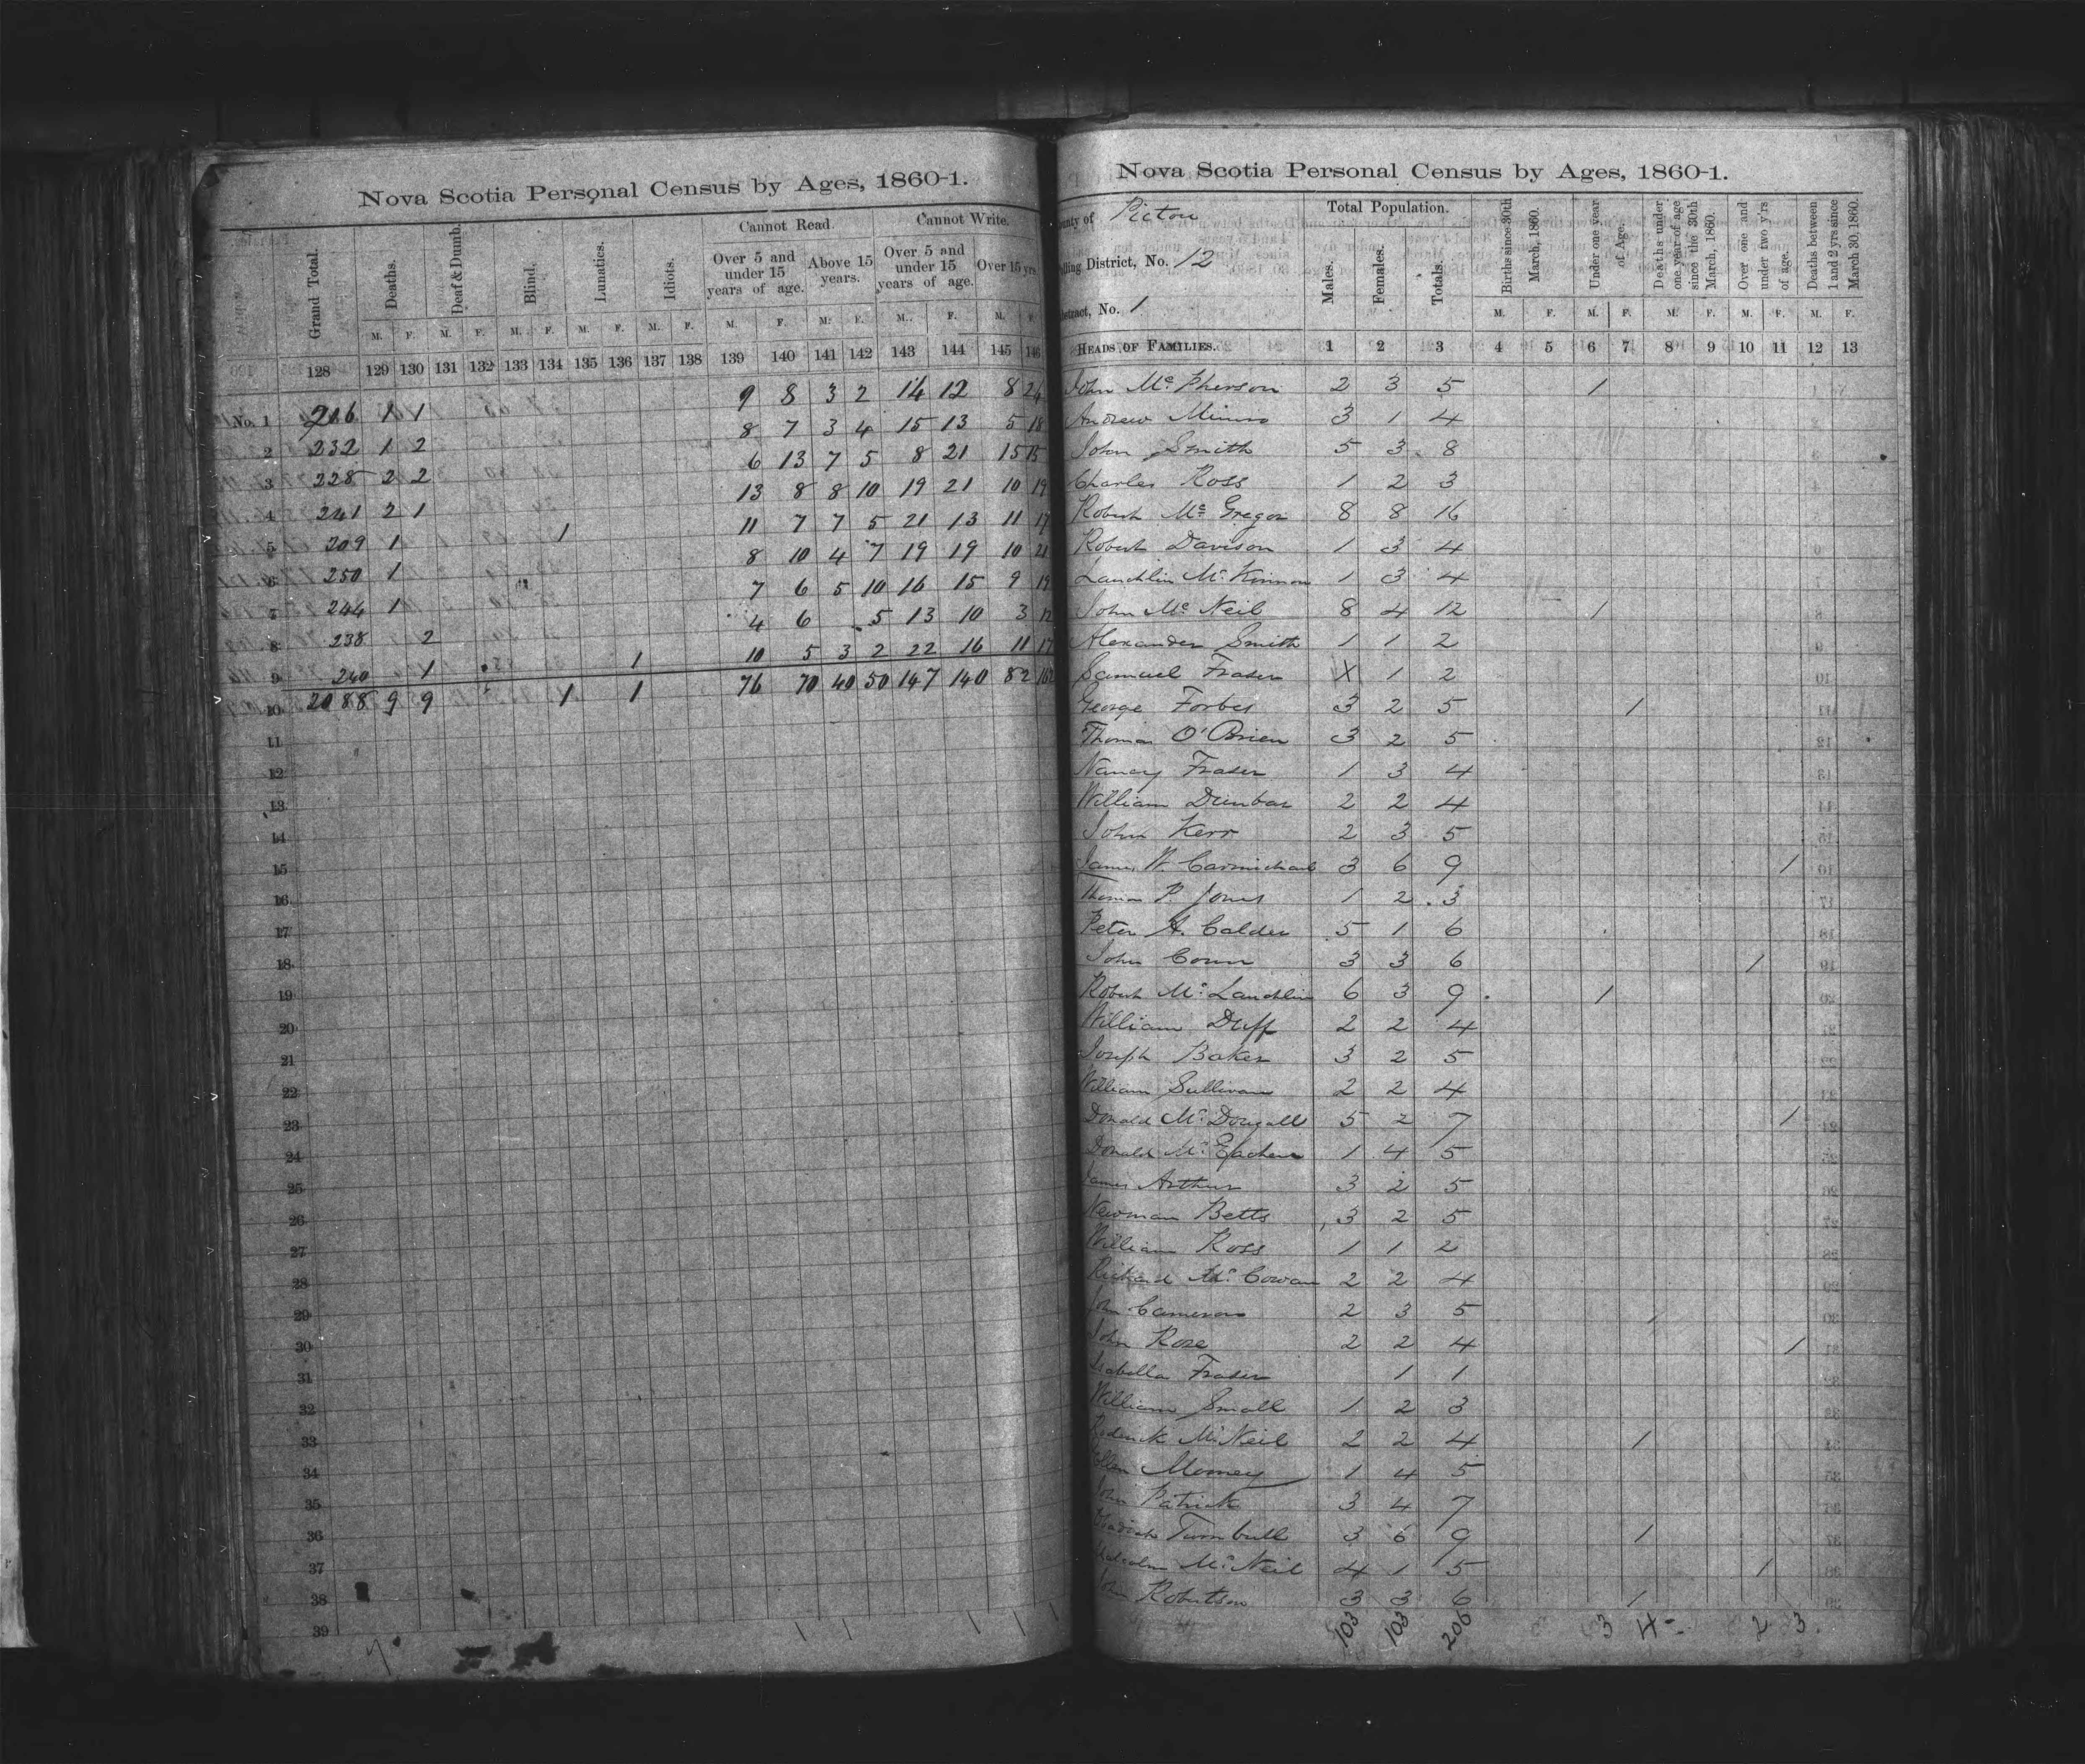 Nova Scotia Personal Census by Ages, 1860-1.
Grand Total. Deaths. Deaf & Dumb. Blind. Lunatics. Idiots. Cannot Read. Cannot Write.
Over 5 and under 15 years of age. Above 15 years. Over 5 and under 15 years of age. Over 15 yrs
M. F. M. F. M. F. M. F. M. F. M. F. M. F. M. F. M.
128 129 130 131 132 133 134 135 136 137 138 139 140 141 142 143 144 145 146
No. 1 206 1 1 9 8 3 2 14 12 8 24
2 232 1 2 8 7 3 4 15 13 5 18
3 228 2 2 6 13 7 5 8 21 15 15
4 241 2 1 13 8 8 10 19 21 10 19
5 209 1 1 11 7 7 5 21 13 11 17
6 250 1 8 10 4 7 19 19 10 21
7 244 1 7 6 5 10 16 15 9 19
8 238 2 4 6 5 13 10 3 12
9 240 1 1 10 5 3 2 22 16 11 17
10 2088 9 9 1 1 76 70 40 50 147 140 82 162
11
12
13
14
15
16
17
18
19
20
21
22
23
24
25
26
27
28
29
30
31
32
33
34
35
36
37
38
39
Nova Scotia Personal Census by Ages, 1860-1.
County of Pictou
Polling District, No. 12
Abstract, No. 1
Total Population. Births since 30th March, 1860. Under one year of Age. Deaths under one year of age since the 30th March, 1860. Over one and under two y'rs of age. Deaths between 1 and 2 yrs since March 30, 1860.
Males. Females. Totals. M. F. M. F. M. F. M. F. M. F.
Heads of Families. 1 2 3 4 5 6 7 8 9 10 11 12 13
John McPherson 2 3 5 1
Andrew Munro 3 1 4
John Smith 5 3 8
Charles Ross 1 2 3
Robert McGregor 8 8 16
Robert Davison 1 3 4
Lauchlin McKinnon 1 3 4
John McNeil 8 4 12 1
Alexander Smith 1 1 2
Samuel Fraser X 1 2
George Forbes 3 2 5 1
Thomas O'Brien 3 2 5
Nancy Fraser 1 3 4
William Dunbar 2 2 4
John Kerr 2 3 5
James W. Carmichael 3 6 9 1
Thomas P. Jones 1 2 3
Peter A. Calder 5 1 6
John Conn 3 3 6 1
Robert McLauchlin 6 3 9 1
William Duff 2 2 4
Joseph Baker 3 2 5
William Sullivan 2 2 4
Donald McDougall 5 2 7 1
Donald McEachern 1 4 5
James Arthur 3 2 5
Newman Betts 3 2 5
William Ross 1 1 2
Richard McCowan 2 2 4
John Cameron 2 3 5
John Rose 2 2 4 1
Isabella Fraser 1 1
William Small 1 2 3
Roderick McNeil 2 2 4 1
Ellen 1 4 5
John Patrick 3 4 7
Turnbull 3 6 9 1
Malcolm McNeil 4 1 5 1
John Robertson 3 3 6 1
103 103 206 3 4 2 3